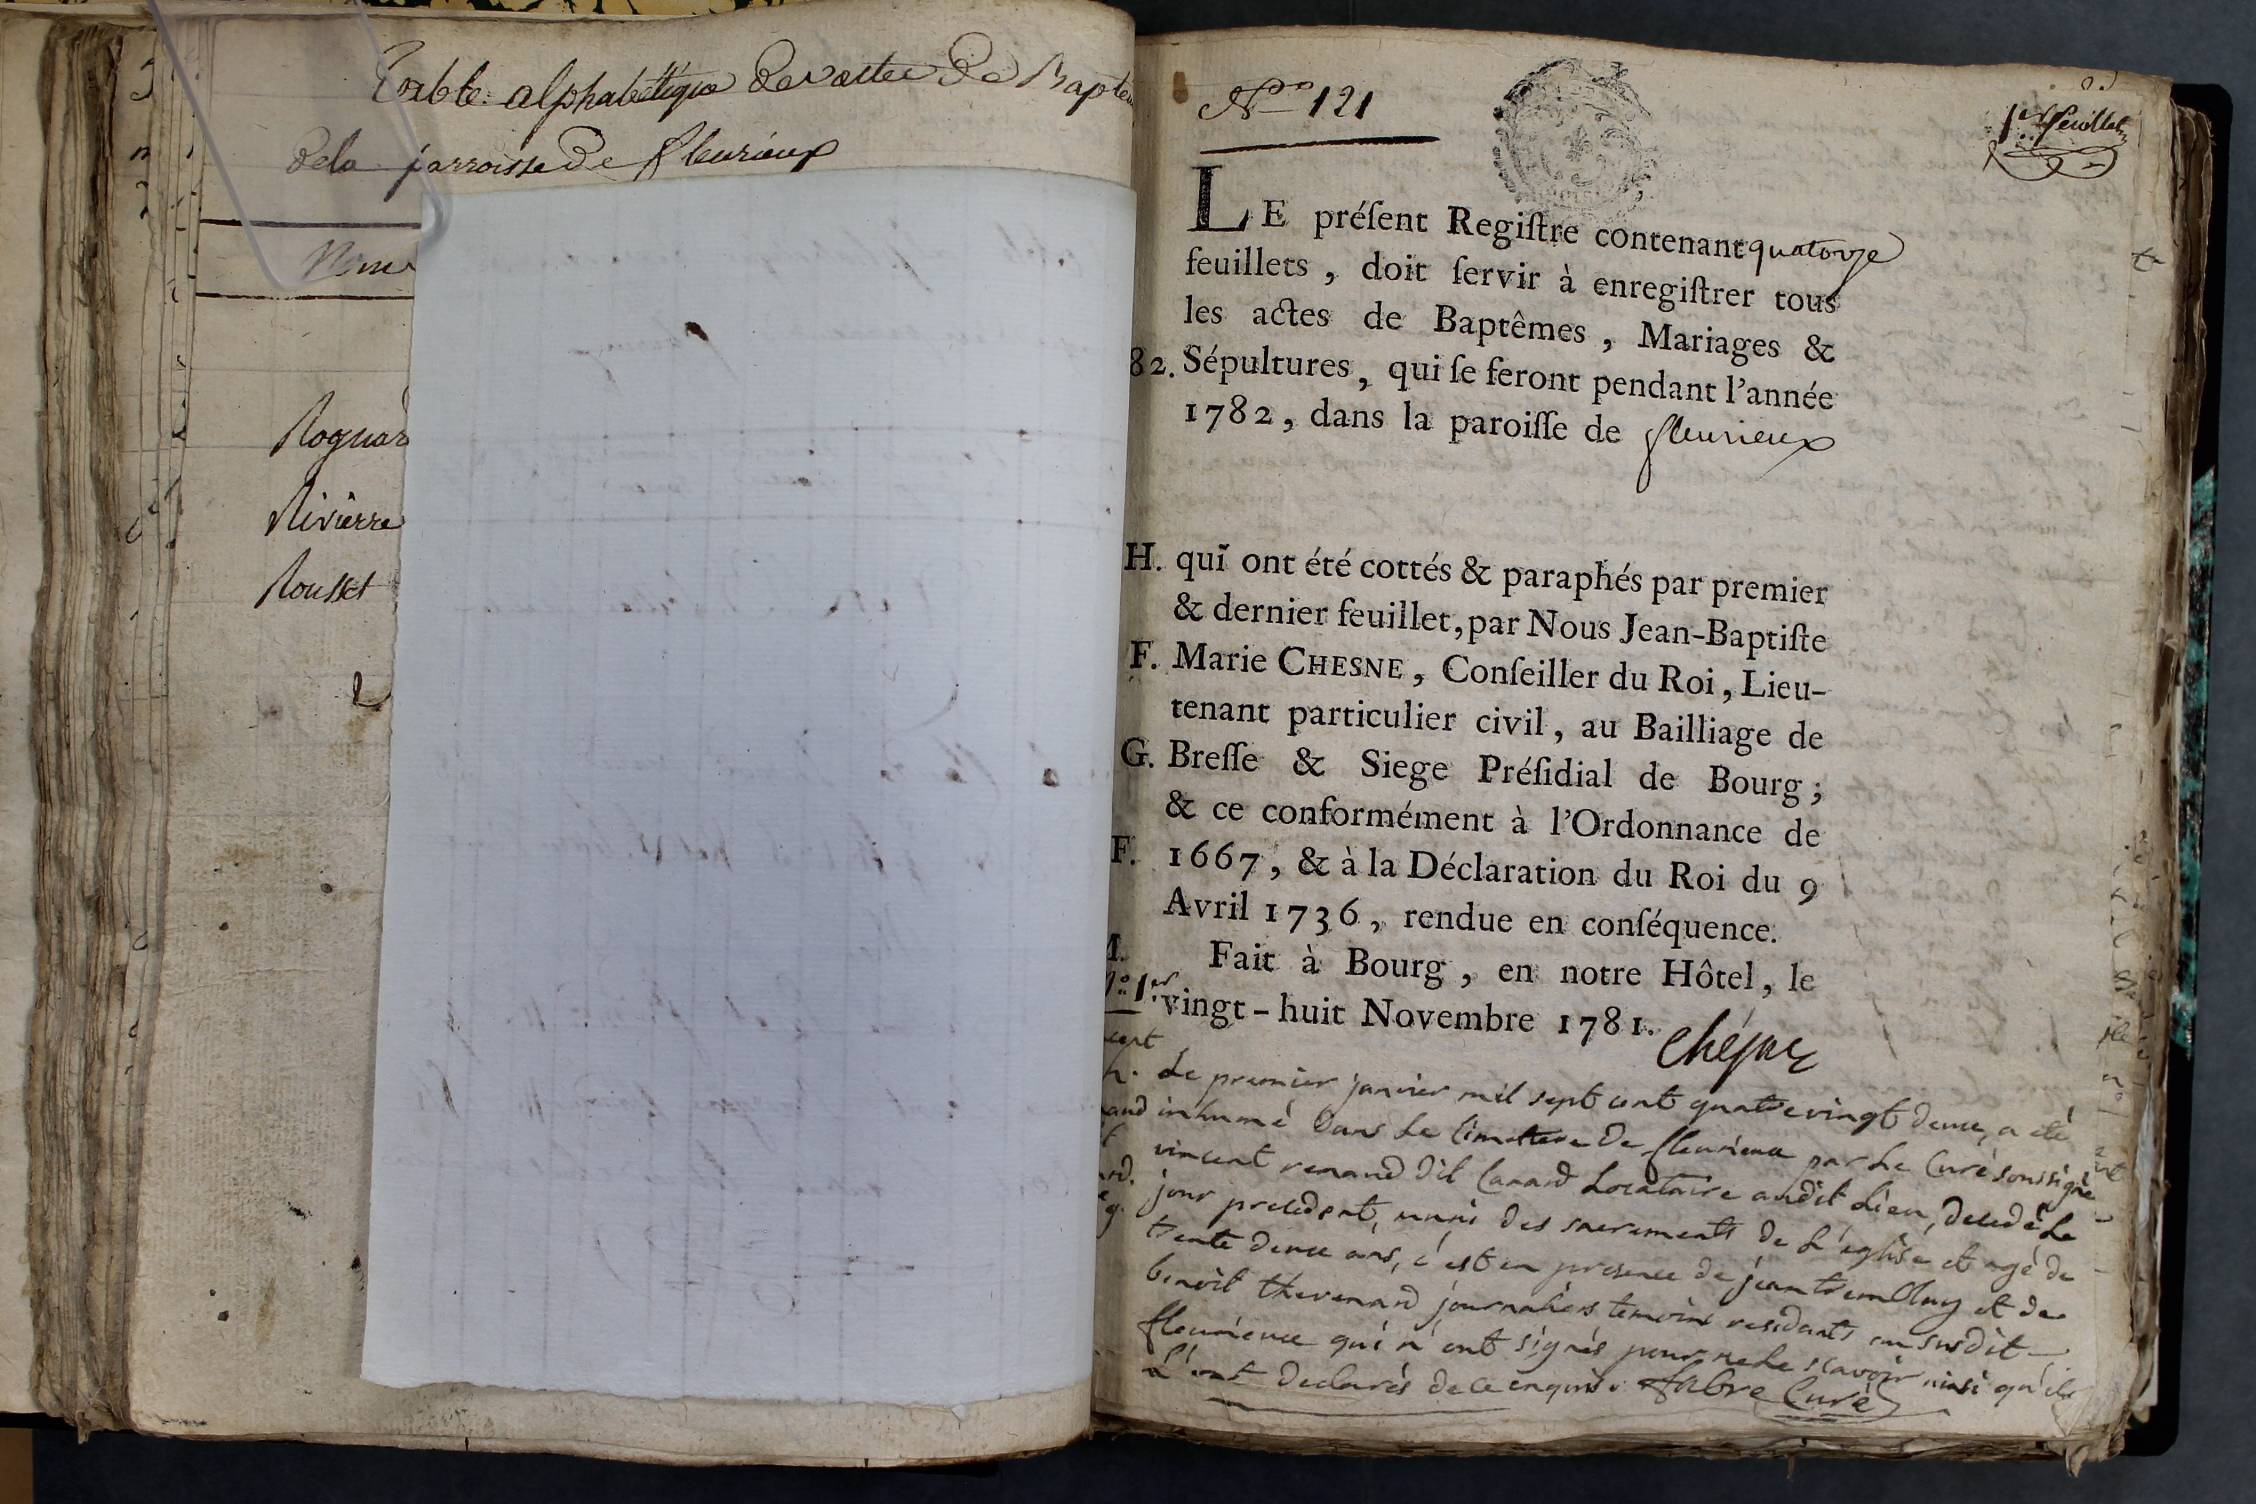 Table alphabétique des actes de Bapte
dela parroisse de fleurieux
Noms
Rognard
Rivierre
Rousset
No 121
1er feuillet
LE préſent Regiſtre contenant quatorze
feuillets, doit ſervir à enregiſtrer tous
les actes de Baptêmes, Mariages &
82. Sépultures, qui ſe feront pendant l'année
1782, dans la paroiſſe de fleurieux
H. qui ont été cottés & paraphés par premier
& dernier feuillet, par Nous Jean-Baptiſte
F. Marie CHESNE, Conſeiller du Roi, Lieu-
tenant particulier civil, au Bailliage de
G. Breſſe & Siege Préſidial de Bourg;
& ce conformément à l'Ordonnance de
F. 1667, & à la Déclaration du Roi du 9
Avril 1736, rendue en conſéquence.
M. Fait à Bourg, en notre Hôtel, le
No 1er vingt-huit Novembre 1781. Chesne
Le premier janvier mil sept cent quatrevingt deux, a été
inhumé dans le Cimetiere de fleurieux par le Curé soussigné
vincent renand dit Canard Locataire audit Lieu, decedé le
jour precedent, muni des sacrements de L'eglise et agé de
trente deux ans, c'est en presence de jean tremblay et de
benoit thevenard journaliers temoins residents au susdit
fleurieux qui n'ont signés pour ne le scavoir ainsi qu'ils
L'ont declarés de ce enquis. fabre Curé